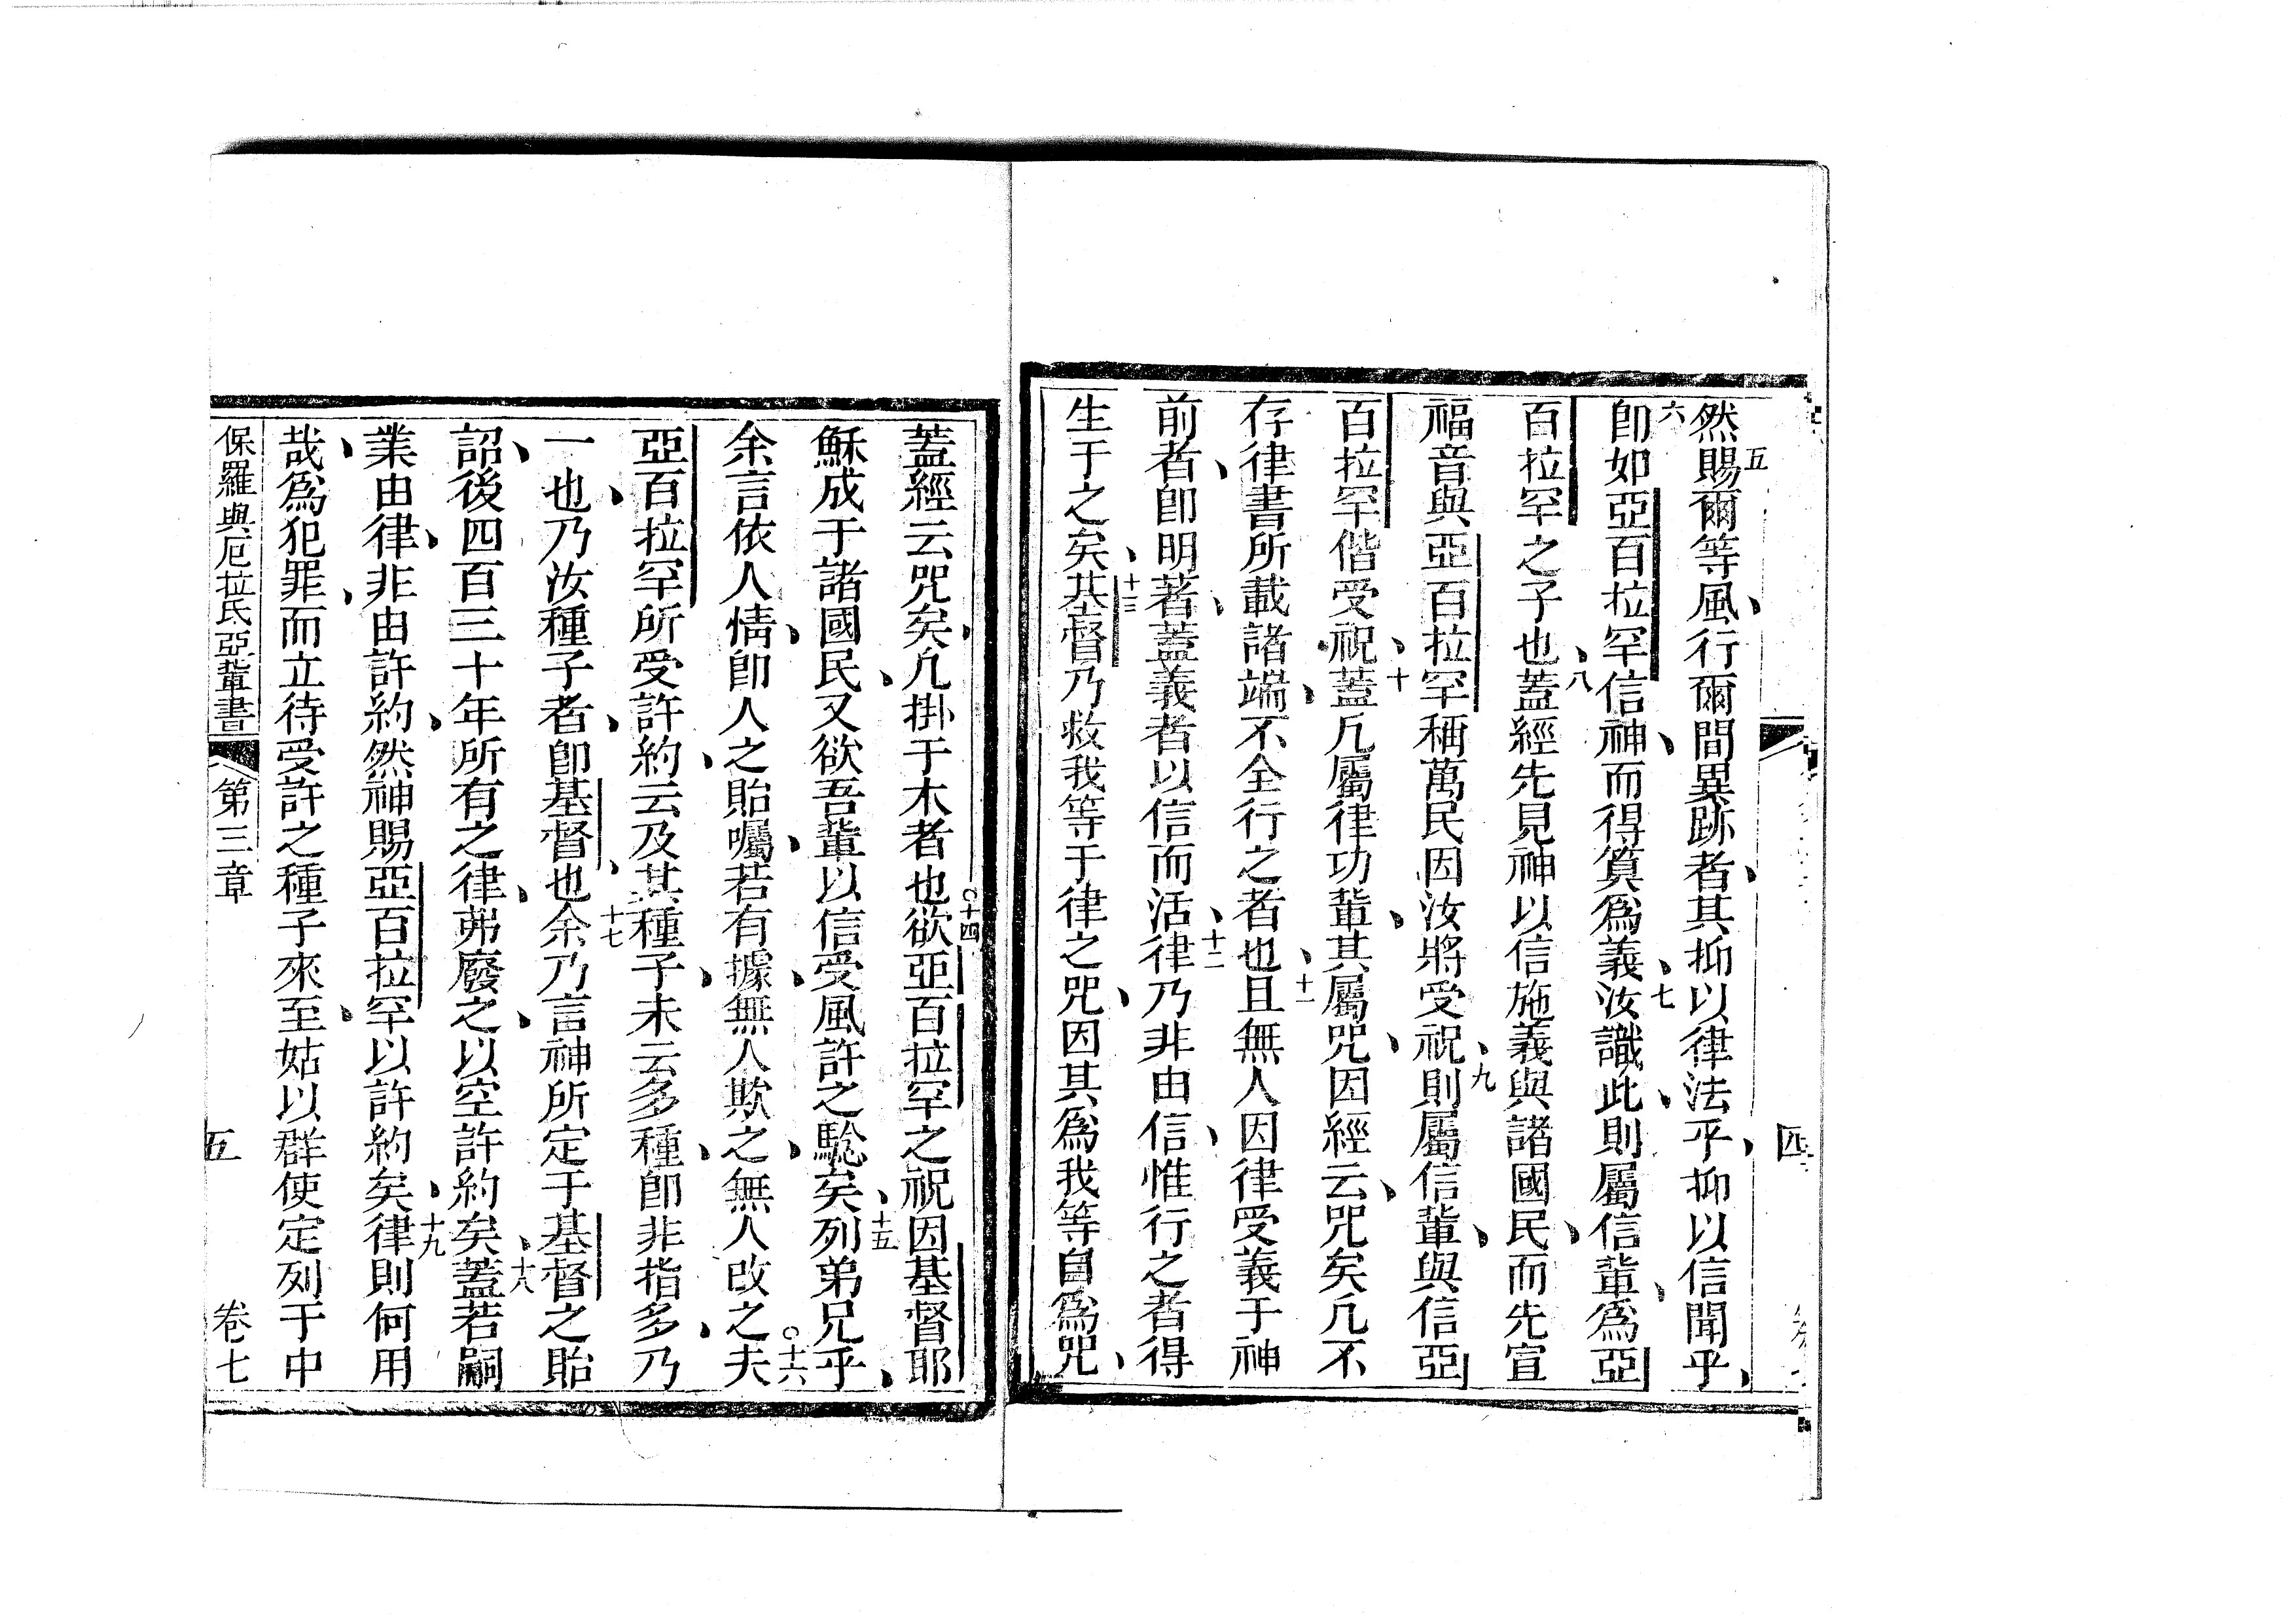 五
然賜爾等風、行爾間異跡者、其抑以律法乎、抑以信聞乎、
六
即如亞百拉罕信神、而得算爲義、汝識此、則屬信輩、爲亞
七
百拉罕之子也、蓋經先見神以信施義與諸國民、而先宣
八
福音與亞百拉罕稱萬民因汝將受祝、則屬信輩、與信亞
九
百拉罕偕受祝、蓋凡屬律功輩、其屬咒、因經云、咒矣凡不
十
存律書所載諸端、不全行之者也、且無人因律受義于神
十一
前者、即明著、蓋義者以信而活、律乃非由信、惟行之者得
十二
生于之矣、基督乃救我等于律之咒、因其爲我等自爲咒、
十三
四
蓋經云咒矣、凡掛于木者也欲亞百拉罕之祝因基督耶
○十四
穌成于諸國民、又欲吾輩以信受風許之騐矣、列弟兄乎、
十五
余言依人情、即人之貽囑、若有據、無人欺之、無人改之夫
○十六
亞百拉罕所受許約、云及其種子、未云多種、即非指多、乃
一也、乃汝種子者、即基督也、余乃言神所定于基督之貽
十七
詔、後四百三十年所有之律、弗廢之、以空許約矣、蓋若嗣
十八
業由律、非由許約、然神賜亞百拉罕以許約矣、律則何用
十九
哉、爲犯罪、而立待受許之種子來至、姑以群使定列于中
保羅與厄拉氐亞輩書 第三章 五 卷七